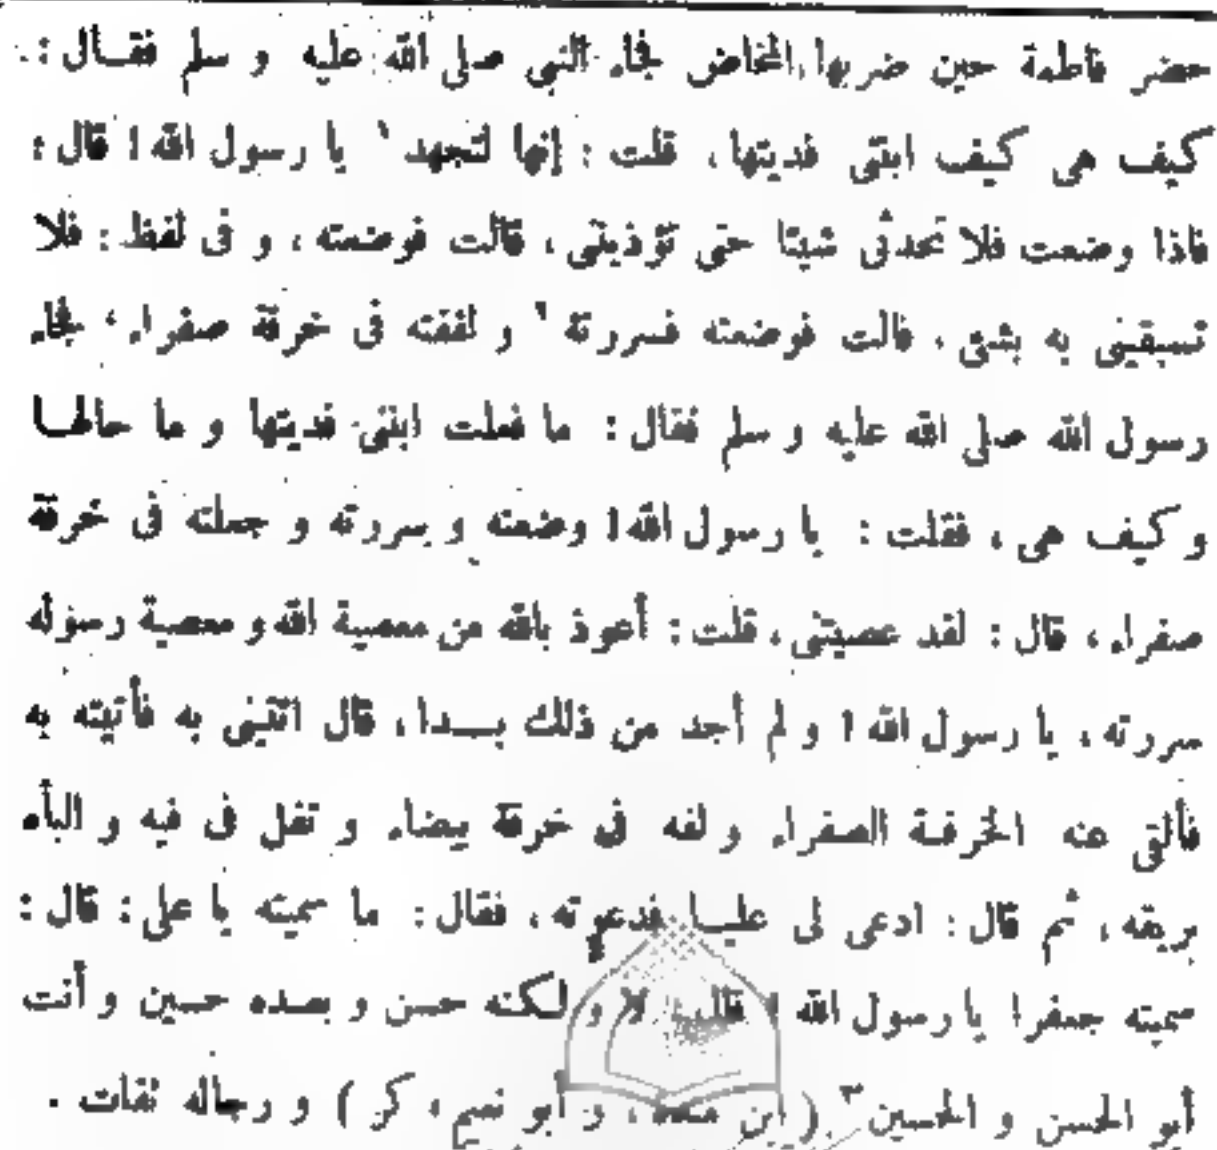 حضر فاطمة حين ضربها المخاض فجاء النبي صلى الله عليه و سلم فقال :
كيف هى كيف ابنتى فديتها ، قلت : إنها لتجهد ١ يا رسول الله ! قال :
فاذا وضعت فلا تحدثى شيئا حتى تؤذينى ، قالت فوضعته ، و فى لفظ : فلا
تسبقينى به بشئ ، قالت فوضعته فسررته ٢ و لففته فى خرقة صفراء ، فجاء
رسول الله صلى الله عليه و سلم فقال : ما فعلت ابنتى فديتها و ما حالها
و كيف هى ، فقلت : يا رسول الله ! وضعته و سررته و جعلته فى خرقة
صفراء ، قال : لقد عصيتنى ، قلت : أعوذ بالله من معصية الله و معصية رسوله
سررته ، يا رسول الله ! و لم أجد من ذلك بـــدا ، قال ائتينى به فأتيته به
فألقى عنه الخرقة الصفراء و لفه فى خرقة بيضاء و تفل فى فيه و ألبأه
بريقه ، ثم قال : ادعى لى عليـا فدعوته ، فقال : ما سميته يا على : قال :
سميته جعفرا يا رسول الله ! قال : لا و لكنه حسن و بعده حسين و أنت
أبو الحسن و الحسين ٣ ( ابن منده ، و أبو نعيم ، كر ) و رجاله ثقات .